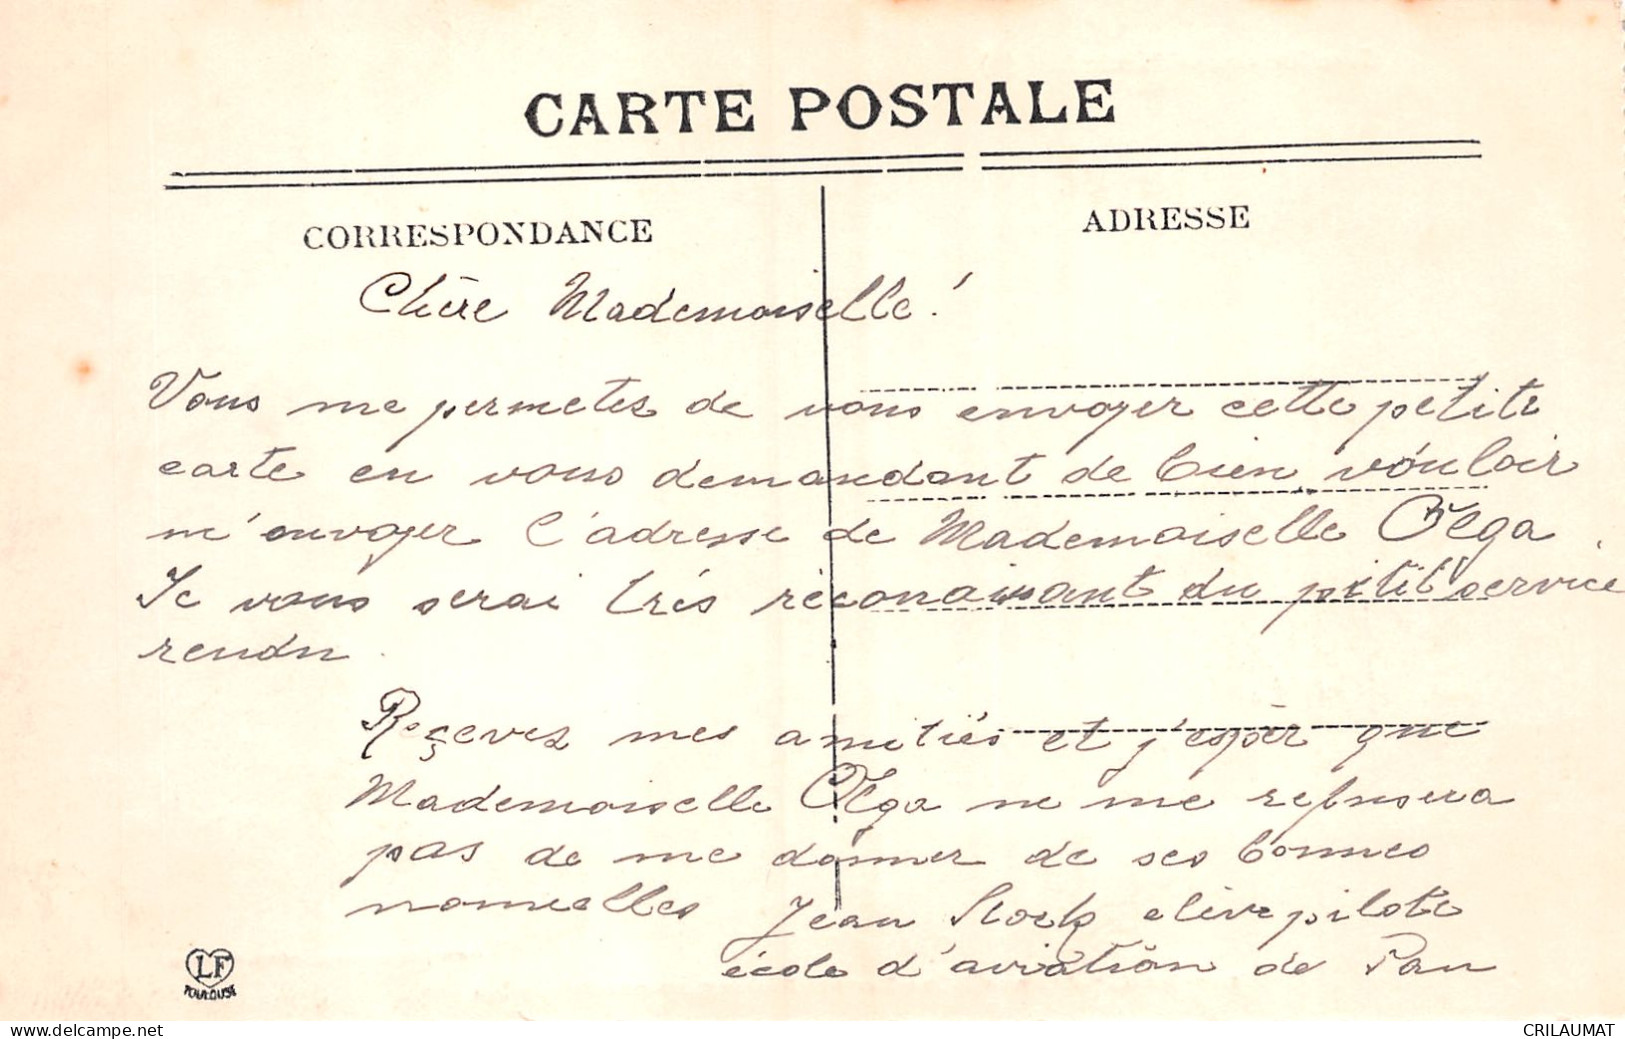 CARTE POSTALE
CORRESPONDANCE
ADRESSE
Chère Mademoiselle!
Vous me permetez de vous envoyer cette petite
carte en vous demandant de bien vouloir
m'envoyer l'adresse de Mademoiselle Olga.
Je vous serai très réconaissant du petit service
rendu.
Reçevez mes amitiés et j'espèr que
Mademoiselle Olga ne me refusera
pas de me donner de ses bonnes
nouvelles Jean Stock elève pilote
école d'aviation de Pau
LF
TOULOUSE
www.delcampe.net
CRILAUMAT